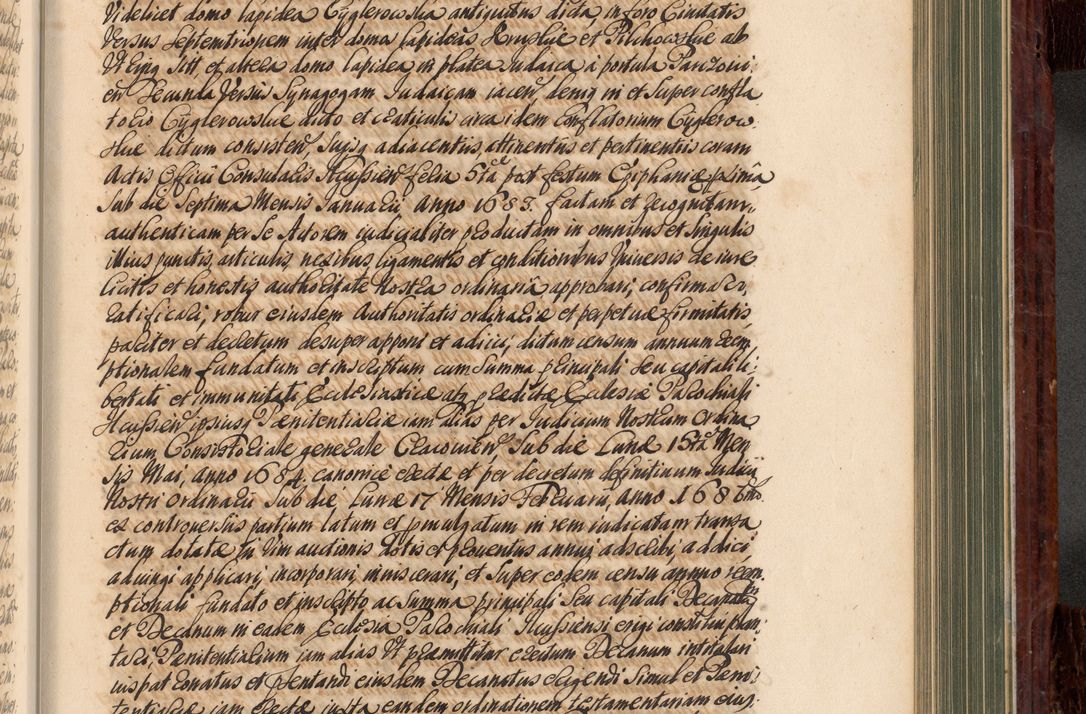 Videlicet domo lapidea Cyglerowslia antiquitus dicta, in foro Civitatis
Versus Septemtrionem inter domos lapideas Krupslue et Pilchowslue ab
Vtrinq sitt et altera domo lapidea in platea Judaica à portula
en Secunda Versus Synagogam Judaicam iacen deniq in et Super confla
torio Cyglerowslue dicto et craticulis circa idem Conflatorium Cyglerow
slue dictum consisten, suisq adiacentiis attinentiis et pertinentiis coram
Actis Officii Consularis Ilcussien feria 5ta post festum Epiphaniæ
Sub die Septima Mensis Januarii anno 1683. factam et recognitam
authenticam per Se Actorem iudicialiter productam in omnibus et singulis
illius punctis, articulis, nexibus ligamentis et conditionibus Vniversis de iure
licitis et honestis authoritate Nostra ordinaria approbari, confirmari
ratificari, robur eiusdem Authoritatis ordinariæ et perpetuæ firmitatis
pariter et decretum desuper apponi et adiici; dictum censum annuum reem
ptionalem fundatum et inscriptum cum Summa principali seu capitali li
bertati et immunitati Ecclesiasticæ atq prædictæ Ecclesiæ Parochiali
Ilcussien ipsiusq Pænitentiariæ iam alias per Judicium Nostrum Ordina
rium Consistoriale generale Cracovien Sub die Lunæ 15ta Men
sis Maii, anno 1684. canonicè erectæ et per decretum definitivum Judicii
Nostri Ordinarii Sub die Lunæ 17 Mensis Februarii, anno 1686
ex controversiis partium latum et promulgatum in rem iudicatam transa
ctum dotatæ in Vim auctionis dotis et proventus annui adscribi, addici
adiungi applicari, incorporari inviscerari, et Super eodem censu annuo reem
ptionali fundato et inscripto ac Summa principali seu capitali Decanatum
et Decanum in eadem Ecclesia Parochiali Ilcussiensi erigi constitui plan
tari, Pænitentiarium iam alias Vt præmittitur erectum Decanum intitulari
iuspatronatus et præsentandi eiusdem Decanatus erigendi Simul et Pæni
tentiariæ iam erectæ iuxta eandem ordinationem testamentariam eius